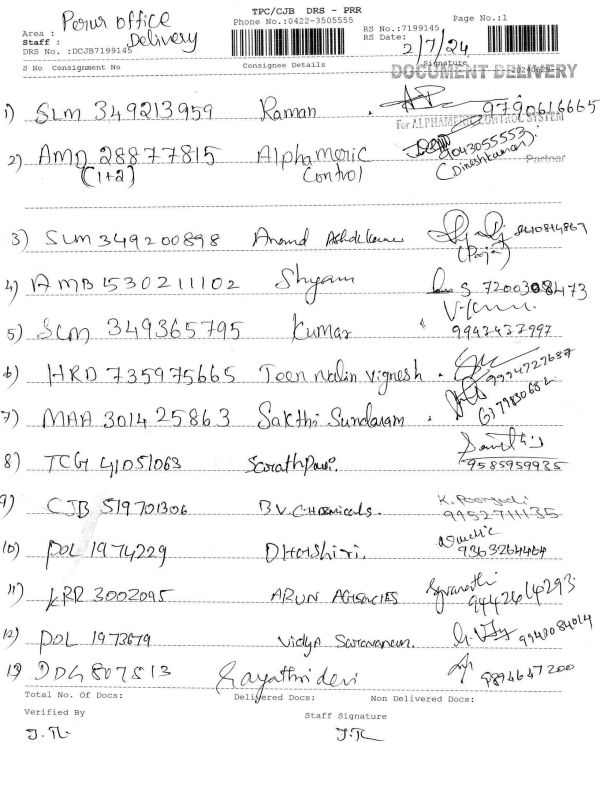 TPC/CJB DRS - PRR
Phone No.:0422-3505555
Page No.:1
RS No.:7199145
RS Date: 2/7/24
Area : Perur office
Staff : Delivery
DRS No. :DCJB7199145
S No Consignment No Consignee Details Signature
DOCUMENT DELIVERY
1) SLM 349213959 Raman 9790616665
For ALPHAMERIC CONTROL SYSTEM
2) AMD 28877815 Alphameric 9043055553
(1+2) Control (Dineshkumar) Partner
3) SLM 349200898 Anand (Pooja)
4) AMB 1530211102 Shyam S. 7200308473
5) SLM 349365795 Kumar 9942437997
6) HRD 735975665 Teen Nalin Vignesh. 9994727687
7) MAA 301425863 Sakthi Sundaram.
8) TCG 41051063 9585959935
9) CJB 519701306 B.V. Chemicals. 9952711135
10) POL 1974229
11) KRR 3002095 ARUN AGENCIES 9442614293
12) POL 1973679 Vidya Saravanan.
13) Gayathri devi
Total No. Of Docs: Delivered Docs: Non Delivered Docs:
Verified By Staff Signature